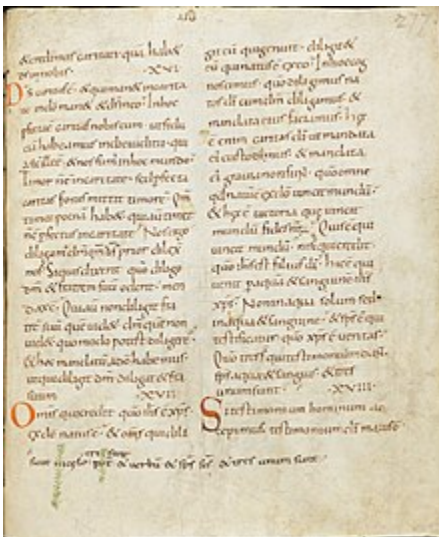 & credimus caritati quā hab&
ds in nobis · XVI ·
Ds caritas ē · & qui man& in carita
te in dō man& & ds in eo · In hoc
perfecta ē caritas nobiscum · ut fidu
ciā habeamus in die iudicii · quia
sic ille ē · & nos sum' in hoc mundo ·
timor n̄ ē in caritate · sed perfecta
caritas foras mittit timorē · Qm̄
timor poenā hab& · qui aūt tim&
n̄ ē perfectus in caritate · Nos ergo
diligam' dm̄ qm̄ ds prior dilex
nos · Si quis dixerit quō diligo
dm̄ & fratrem suū oderit · men
dax ē · Qui aūt non diligit fra
trē suū quē uid& · dm̄ quē non
uid& quō modo potest diligere ·
& hoc mandatū habemus
ut qui diligit dm̄ diligat & fra
trem suum · XVII ·
Omnis qui credit quō ihs ē xps
ex dō natus ē · & omis qui dili
git eū qui genuit · diligit &
eū qui natus ē ex eo · In hoc cog
noscimus · quō diligamus na
tos dī cum dm̄ diligamus · &
mandata eius faciamus · hęc
ē enim caritas dī ut mandata
ei' custodiamus · & mandata
ei' grauia non sunt · quō omne
qd natū ē ex dō uincit mundū ·
& hęc ē uictoria quę uincit
mundū fides nr̄a · Quis ē qui
uincit mundū · nisi qui credit
quō ihs est filius dī · hic ē qui
uenit p aquā & sanguinē ihs
xps · Non in aqua solum sed
in aqua & sanguine · & sps ē qui
testificatur quō xps ē ueritas ·
Quō tres s̄ qui testimoniū dant
sps aqua & sanguis · & tres
unum sunt · XVIII ·
Si testimonium hominum ac
cepimus testimonium dī maius ē
sicut in cęlo tres sunt pat̄ & uerbū & sps scs & tres unum sunt